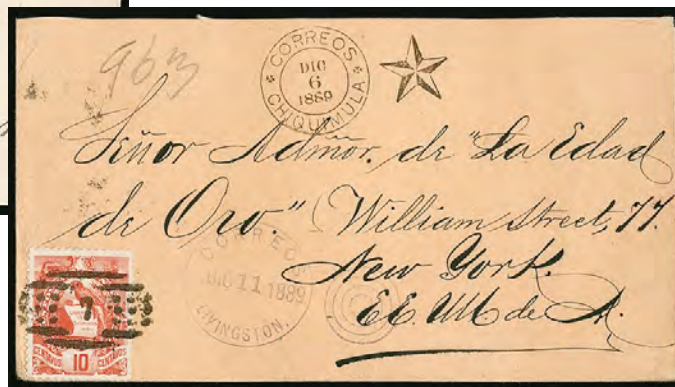 963
CORREOS
DIC
6
1889
CHIQUIMULA
Señor Admor. de "La Edad
de Oro." William Street, 77.
New York.
EE. UU de A.
CORREOS
DIC 11 1889
LIVINGSTON.
7
CENTAVOS 10 CENTAVOS